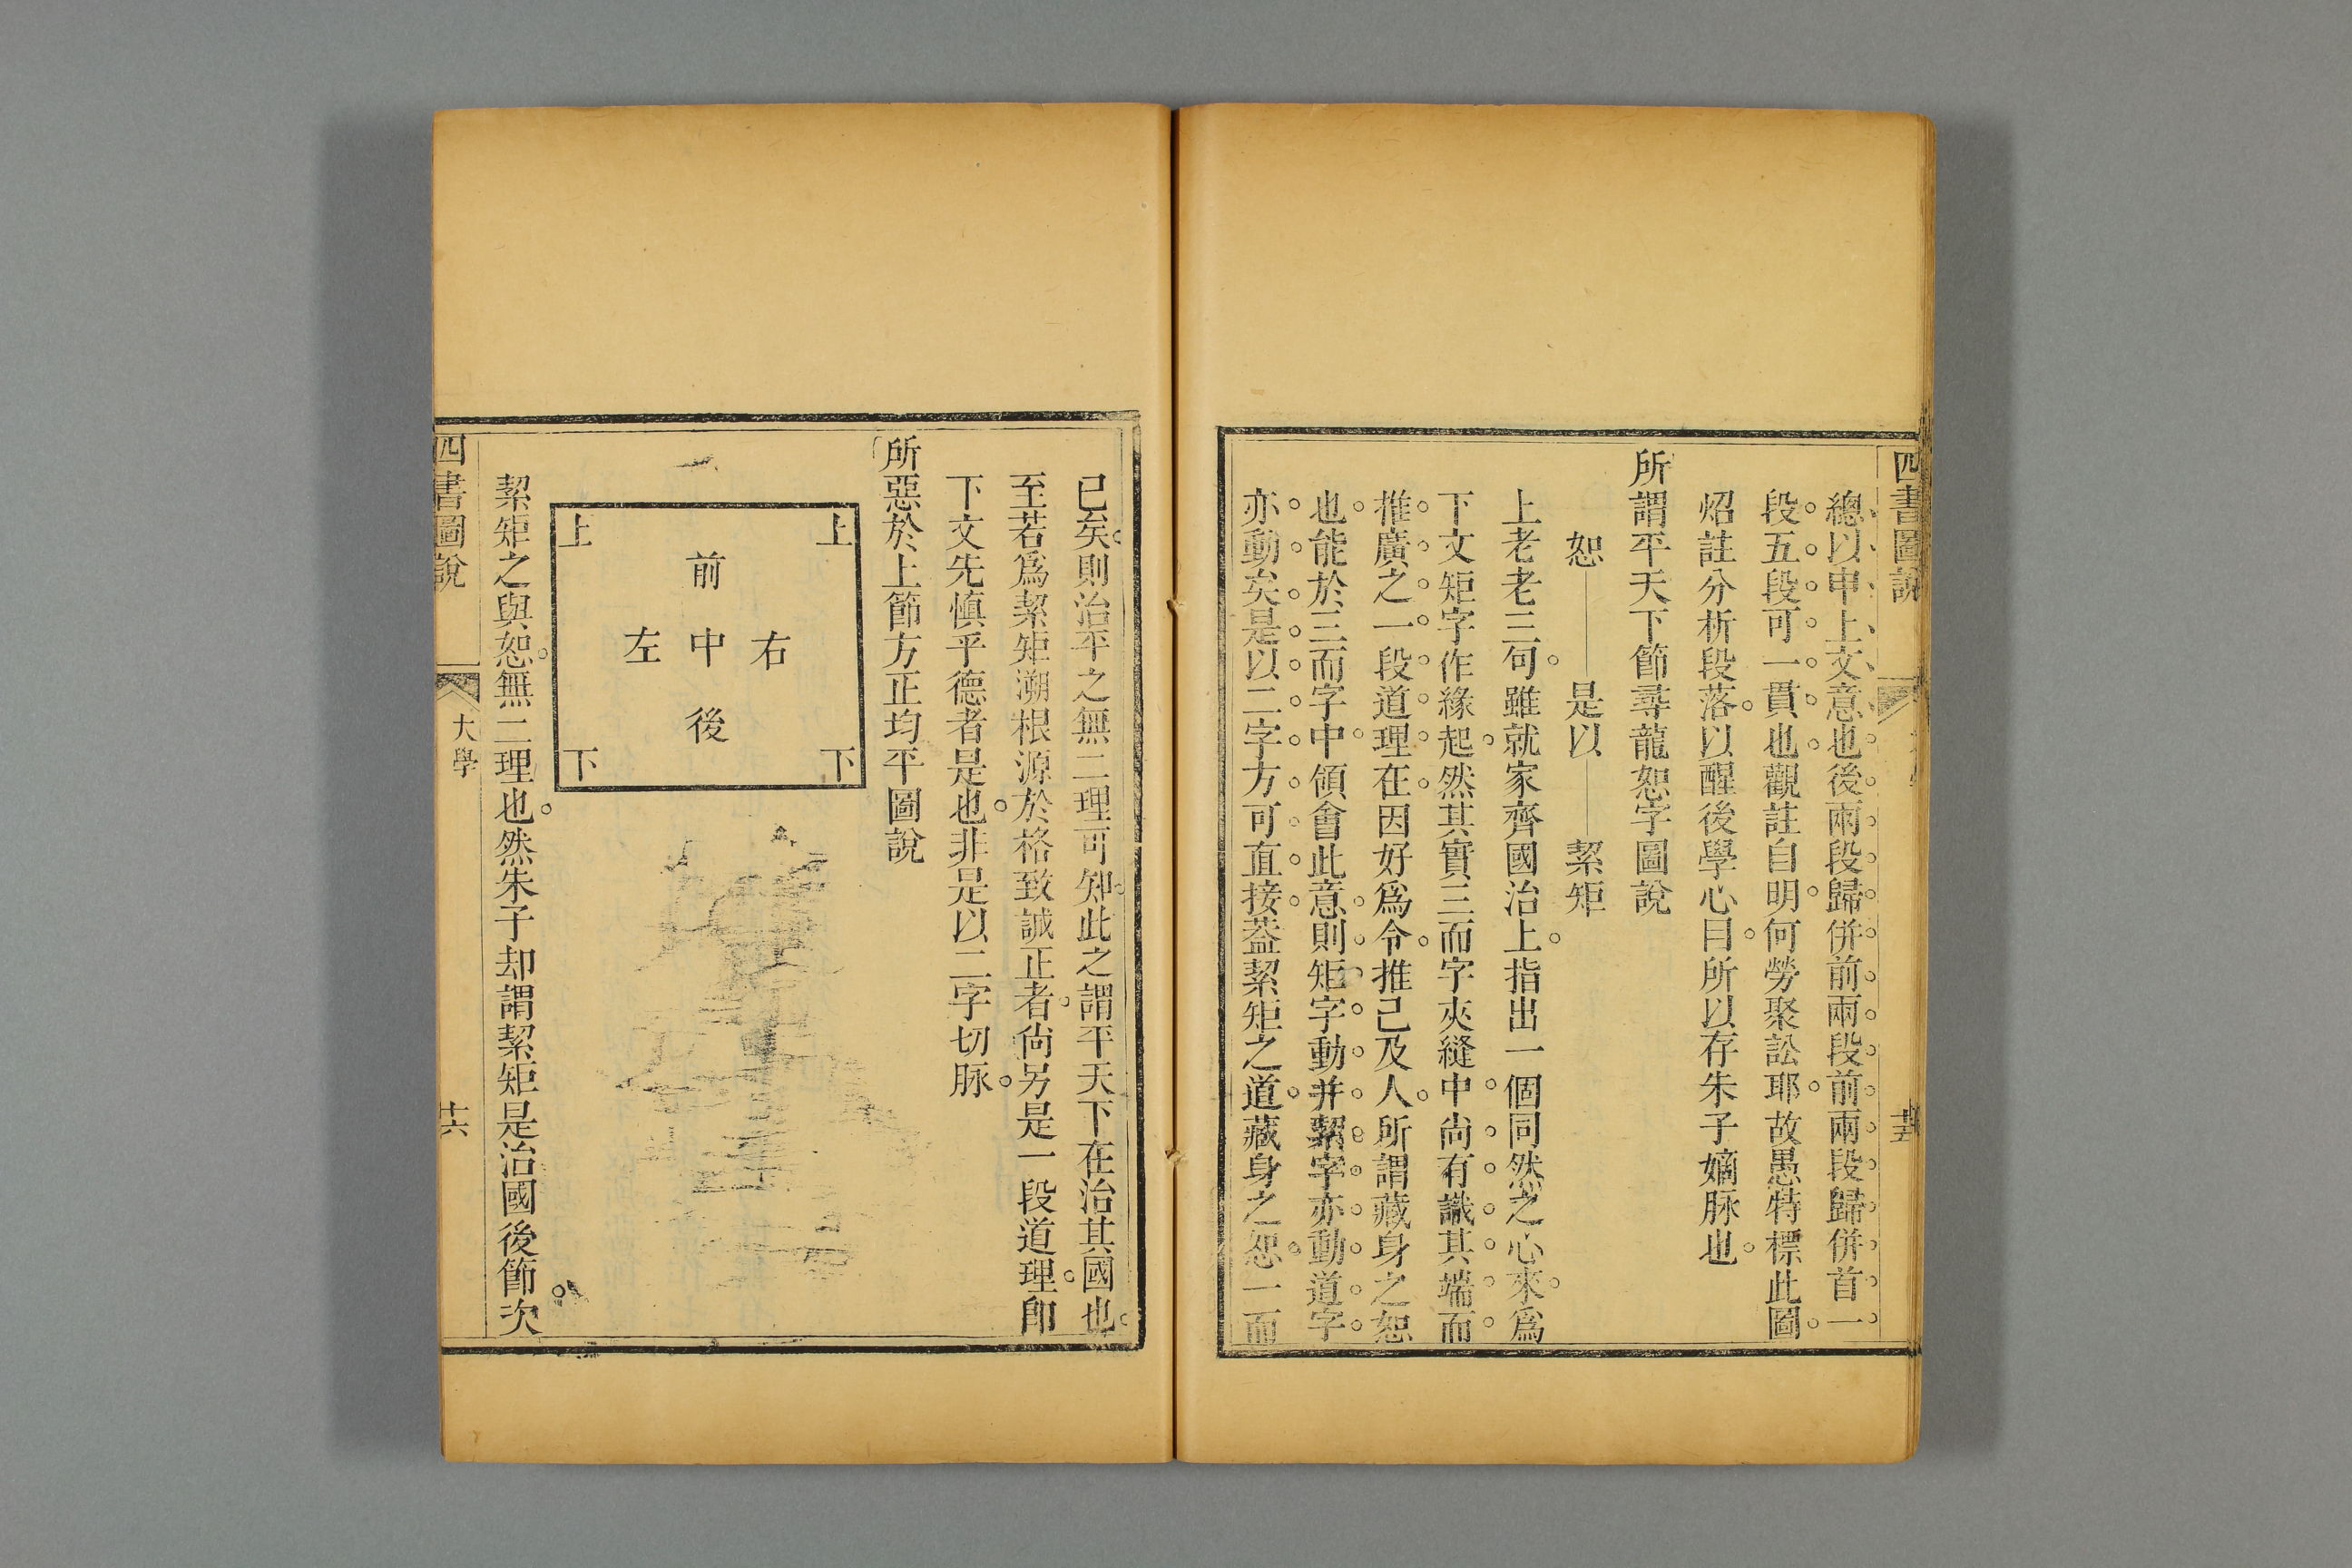 四書圖說
總以申上文意也後兩段歸併前兩段前兩段歸併首一
段五段可一貫也觀註自明何勞聚訟耶故愚特標此圖
炤註分析段落以醒後學心目所以存朱子嫡脉也
所謂平天下節尋龍恕字圖說
恕 是以 絜矩
上老老三句雖就家齊國治上指出一個同然之心來爲
下文矩字作緣起然其實三而字夾縫中尙有識其端而
推廣之一段道理在因好爲令推己及人所謂藏身之恕
也能於三而字中領會此意則矩字動并絜字亦動道字
亦動矣是以二字方可直接葢絜矩之道藏身之恕一而
已矣則治平之無二理可知此之謂平天下在治其國也
至若爲絜矩溯根源於格致誠正者尙另是一段道理卽
下文先愼乎德者是也非是以二字切脉
所惡於上節方正均平圖說
上 上
前
右 中 左
後
下 下
絜矩之與恕無二理也然朱子却謂絜矩是治國後節次
四書圖說 大學 十六